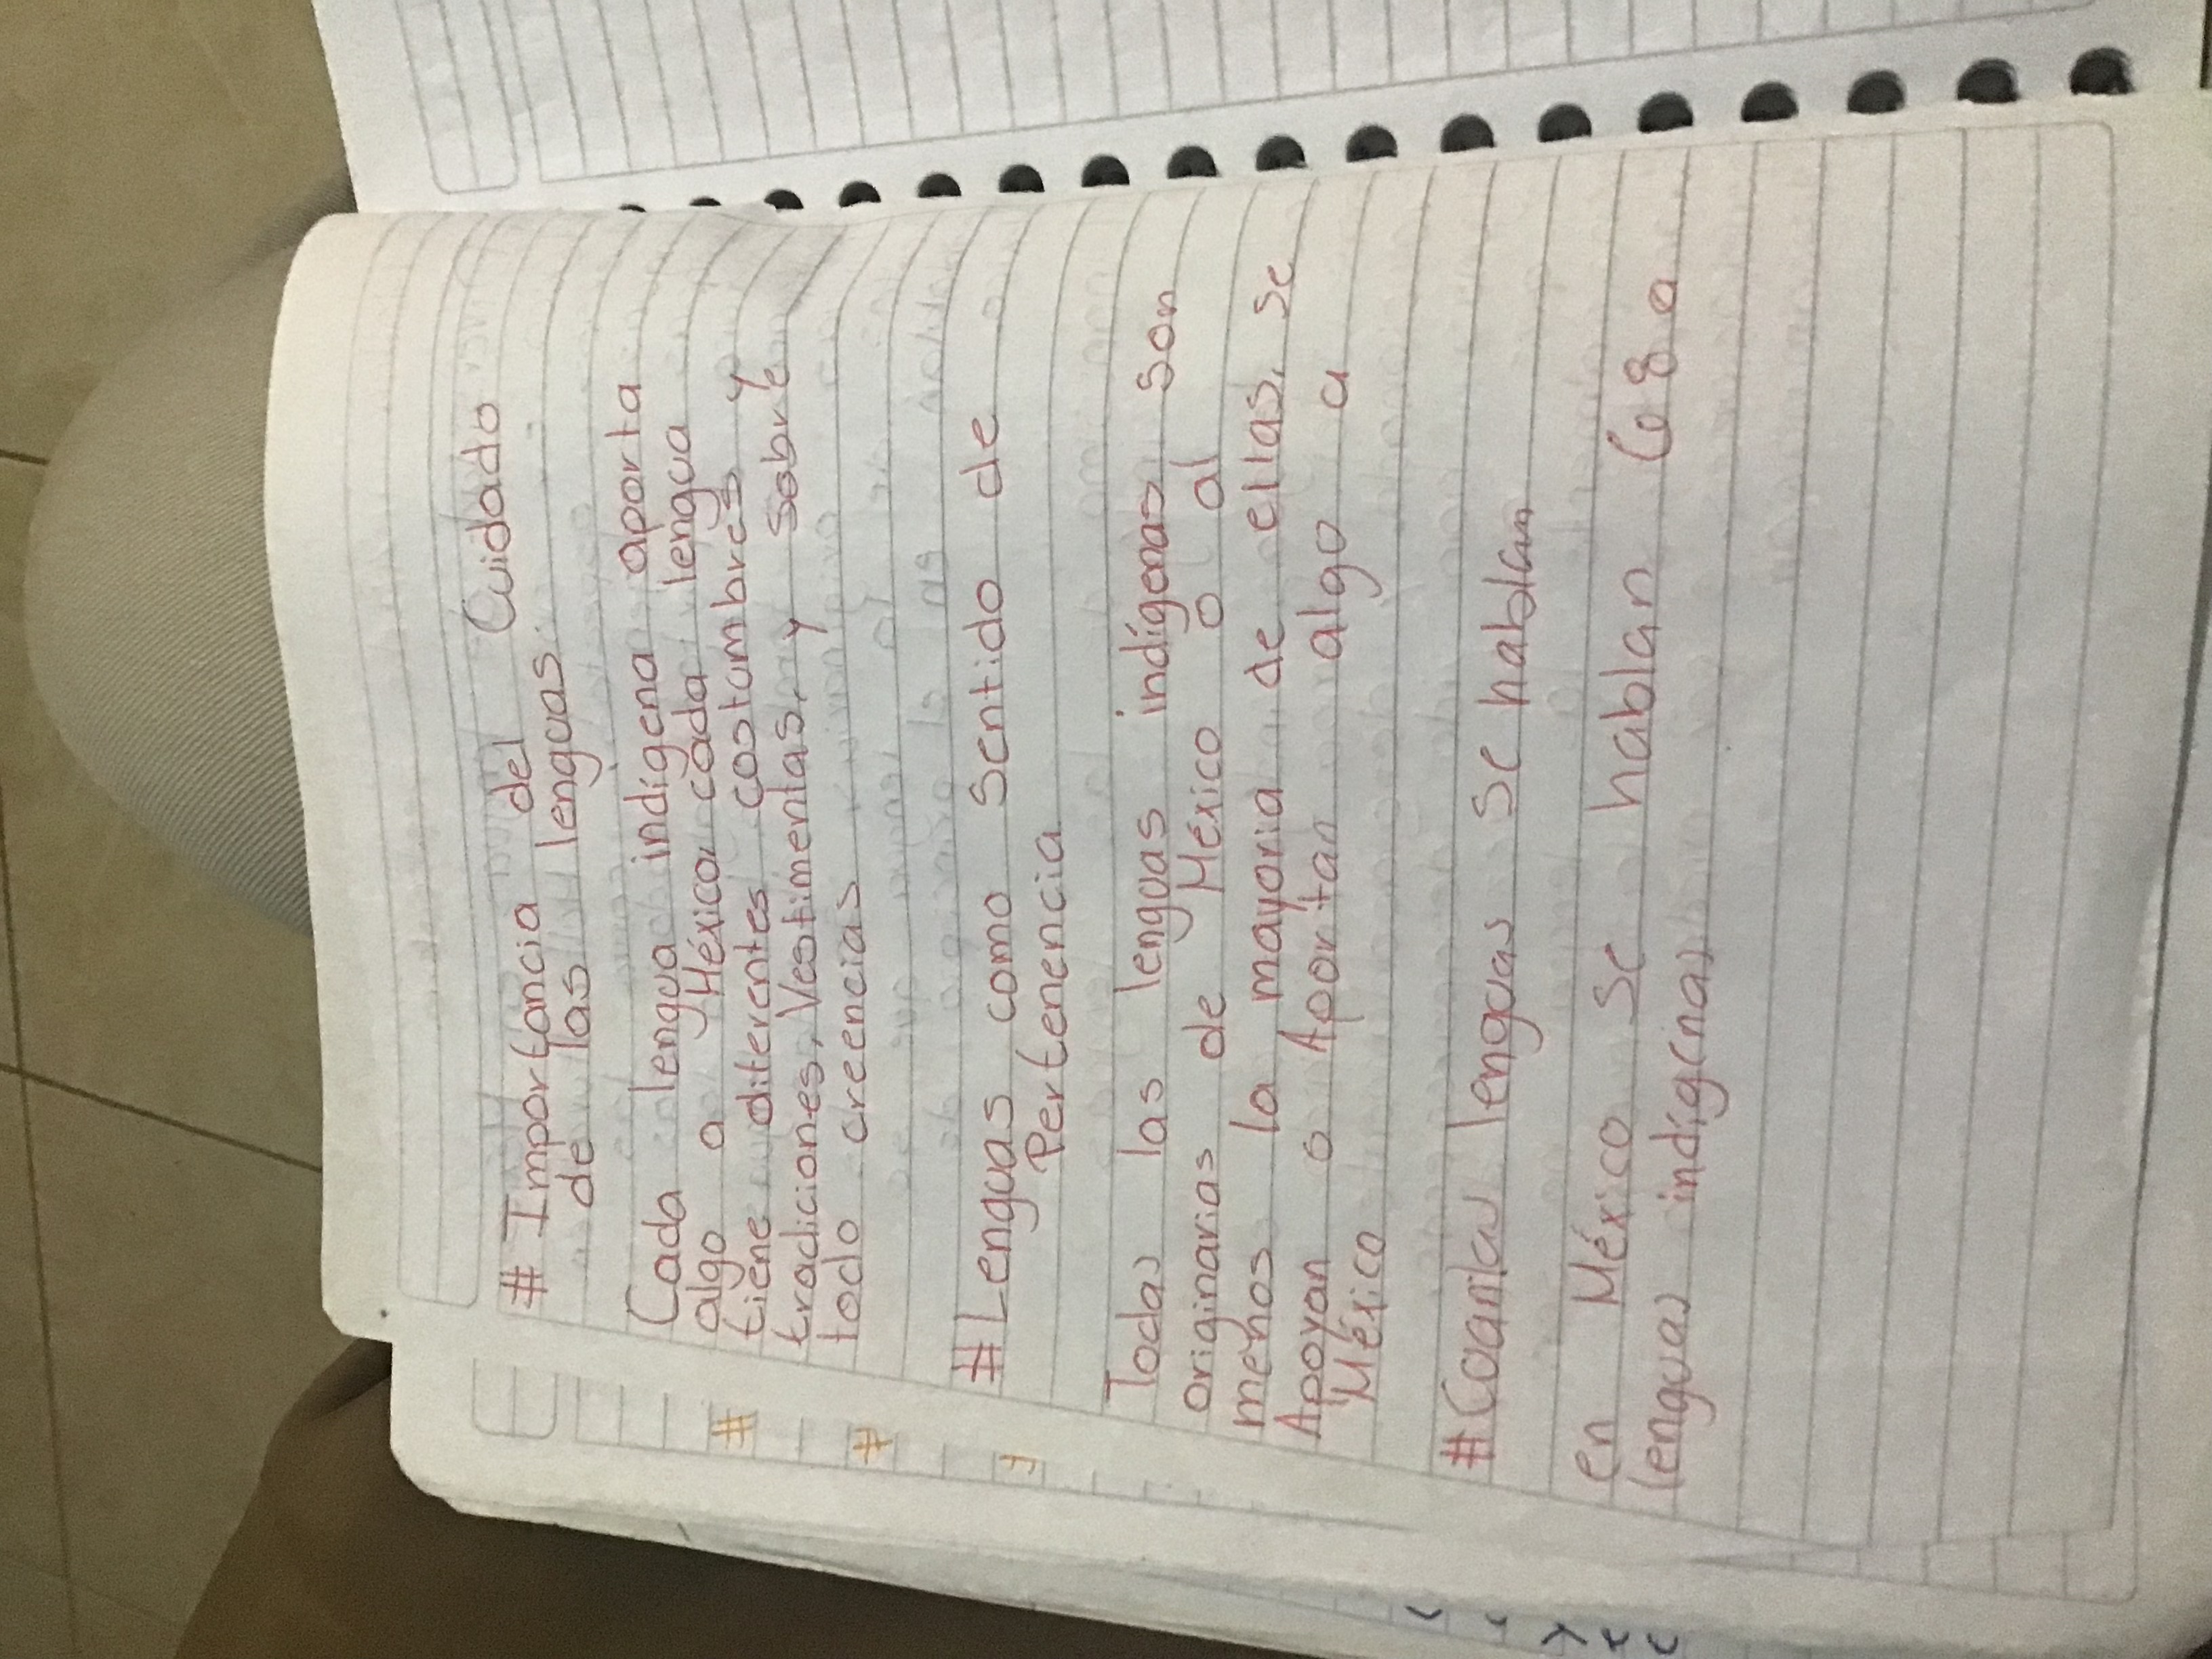 # Importancia del Cuidado
de las lenguas
Cada lengua indígena aporta
algo a México cada lengua
tiene diferentes costumbres y
tradiciones, Vestimentas, y sobre
todo creencias
# Lenguas como Sentido de
Pertenencia
Todas las lenguas indígenas son
originarias de México o al
menos la mayoria de ellas, se
Apoyan o Aportan algo a
México
# Cuantas lenguas se hablan
en México se hablan 68 a
lenguas indígenas
#
#